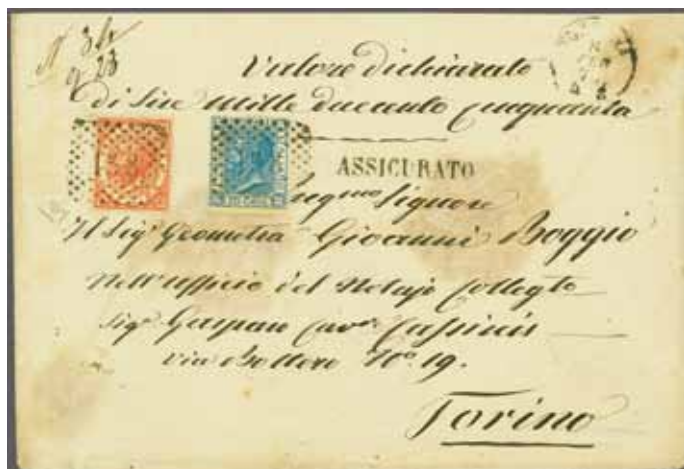 N 34
23
Valore dichiarato
di Lire mille duecento cinquanta
ASSICURATO
Signore
Il Sig.r Geometra Giovanni Boggio
Nell'ufficio del Notajo Colleg.to
Sig.r Gaspare Cav.re Cassinis
Via Bottero N.o 19.
Torino